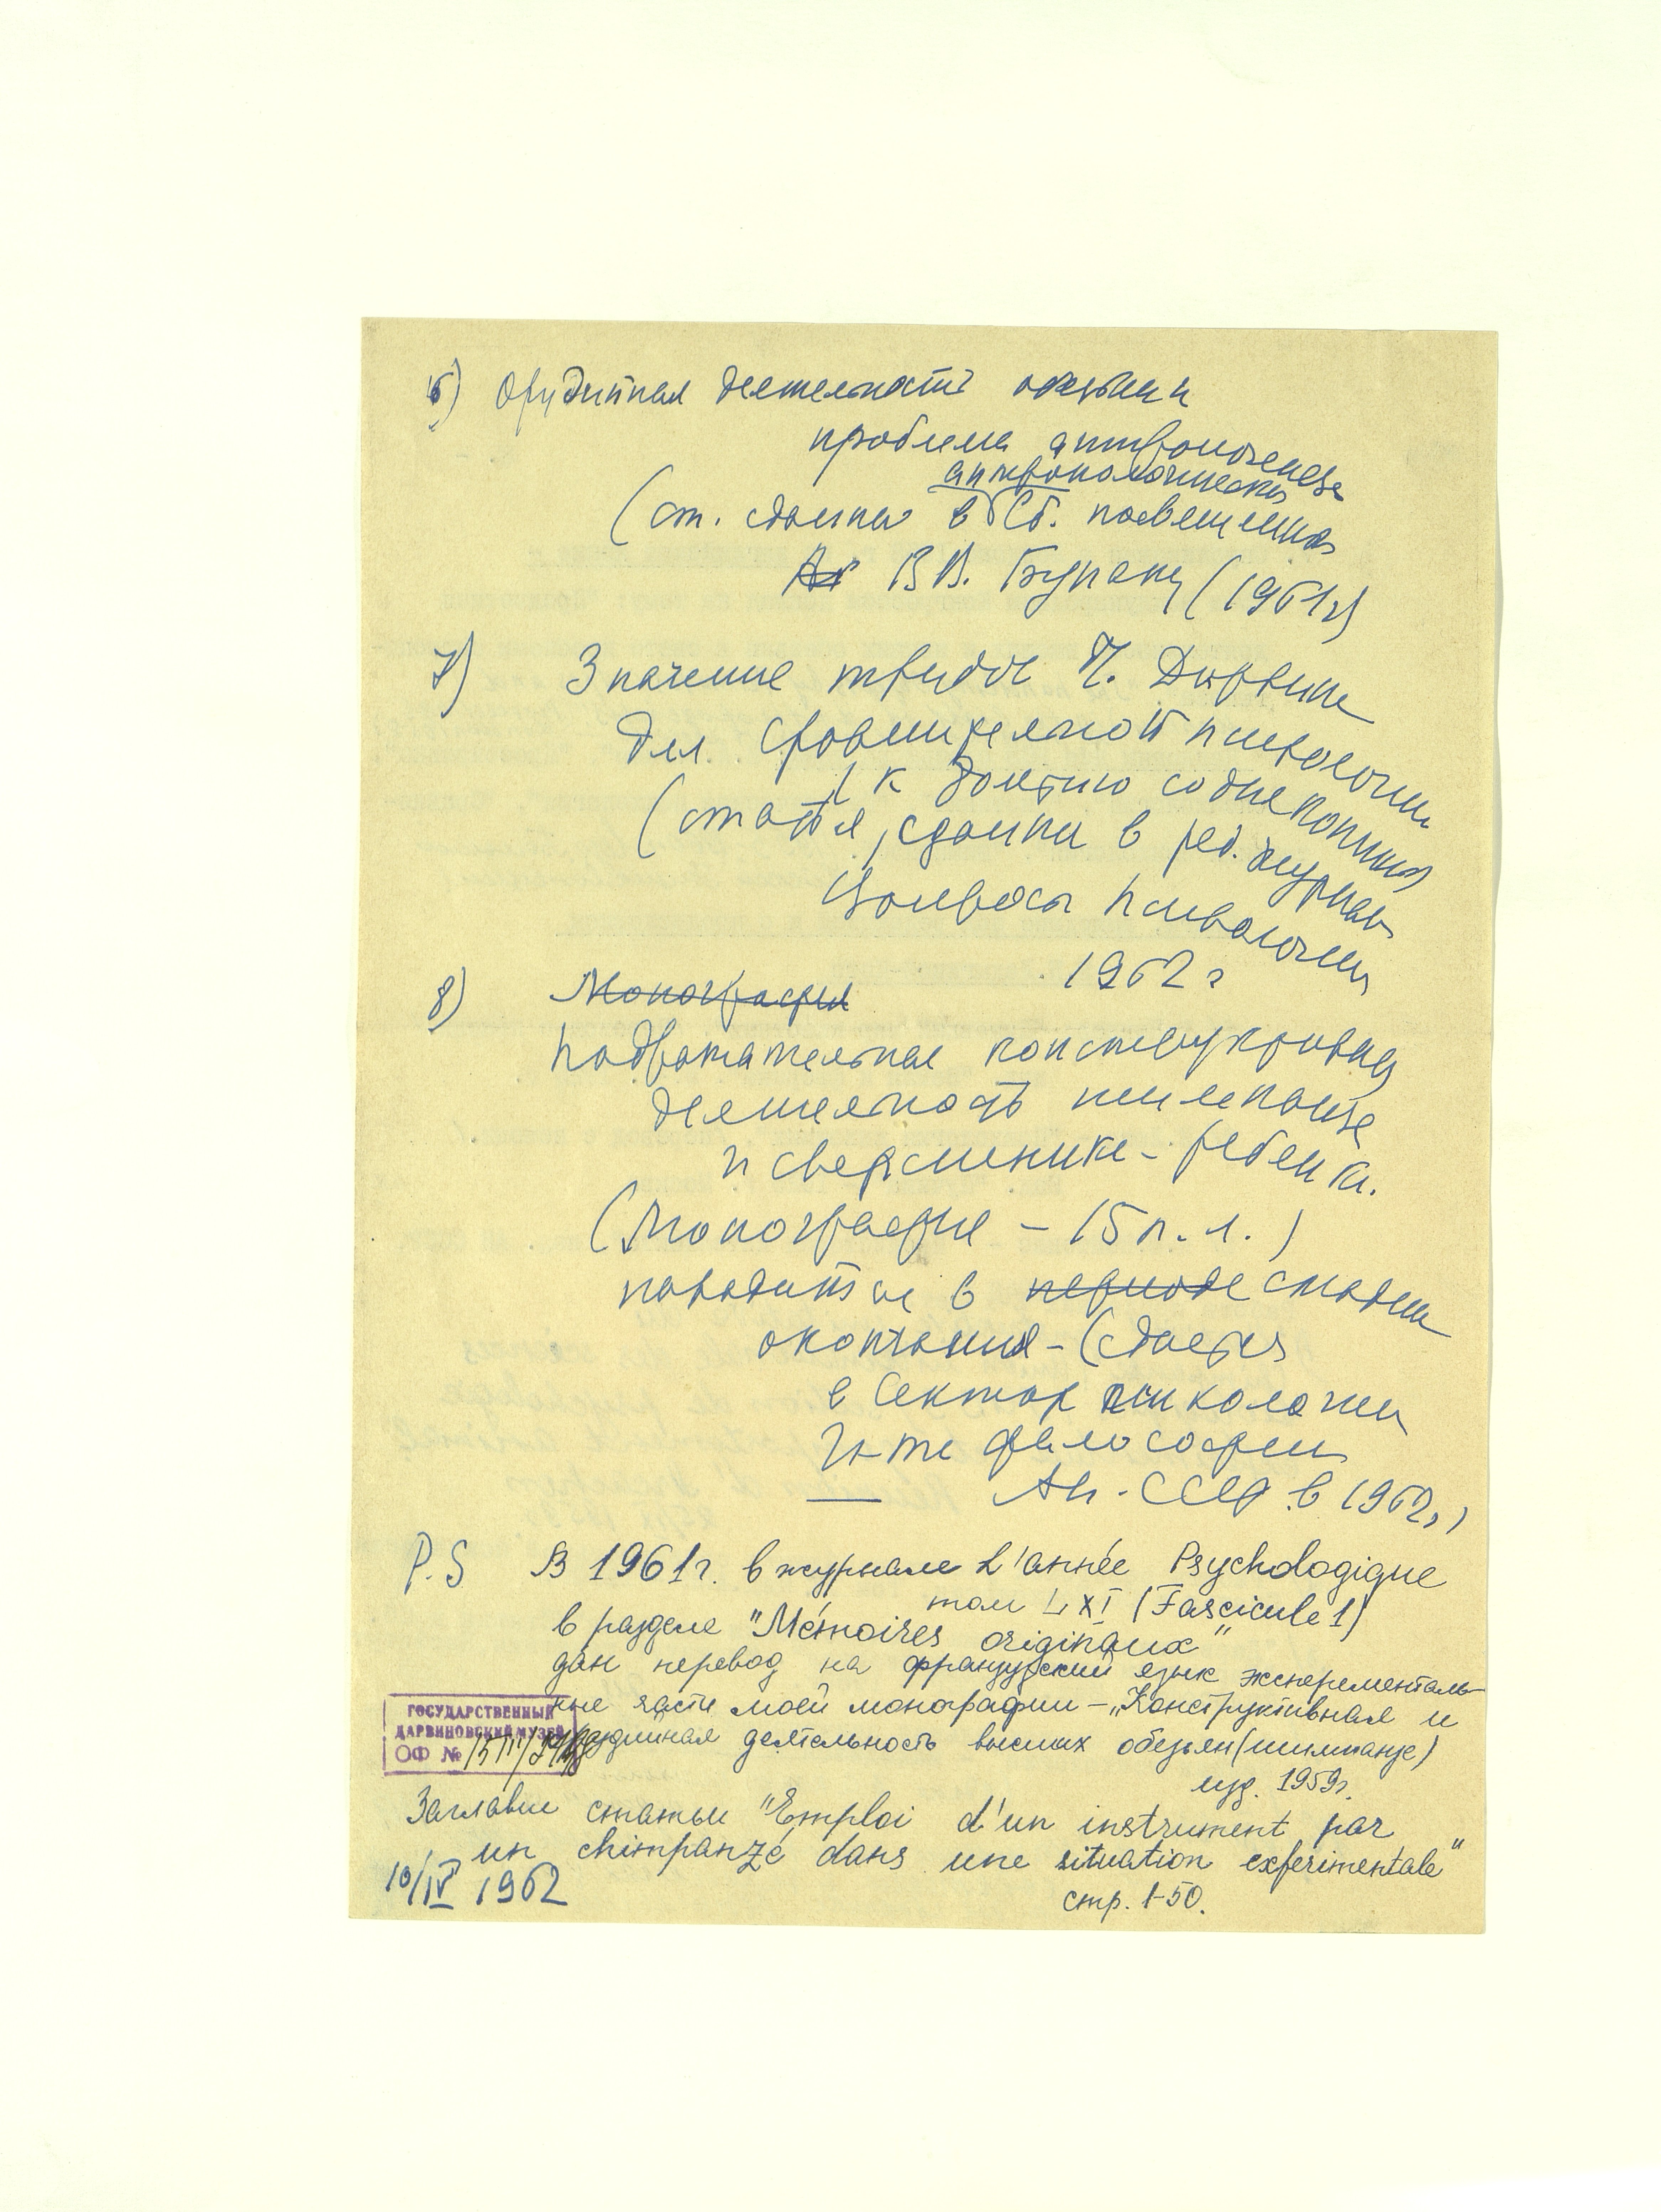 6) Орудийная деятельность обезьян и
проблема антропогенеза
антропологический
(ст. сдана в Сб. посвящённый
В.В. Бунаку (1961г)
7) Значение трудов Ч. Дарвина
для сравнительной психологии
к 80летию со дня кончины
(статья, сдана в ред. журнала
Вопросы психологии
1962 г
8) Монография
Подражательная конструктивная
деятельность шимпанзе
и сверстника - ребенка.
(Монография – 15 п. л.)
находится в периоде стадии
окончания – (сдается
в Сектор психологии
Ин-та философии
АН. СССР в 1962г)
P.S В 1961г. в журнале L'année Psychologique
том LXI (Fascicule 1)
в разделе "Mémoires originaux"
дан перевод на французский язык эксперименталь-
ные части моей монографии – „Конструктивная и
орудийная деятельность высших обезьян (шимпанзе)
изд. 1959г.
ГОСУДАРСТВЕННЫЙ
ДАРВИНОВСКИЙ МУЗЕЙ
ОФ №
Заглавие статьи "Emploi d'un instrument par
un chimpanzé dans une situation experimentale"
стр. 1-50.
10/IV 1962